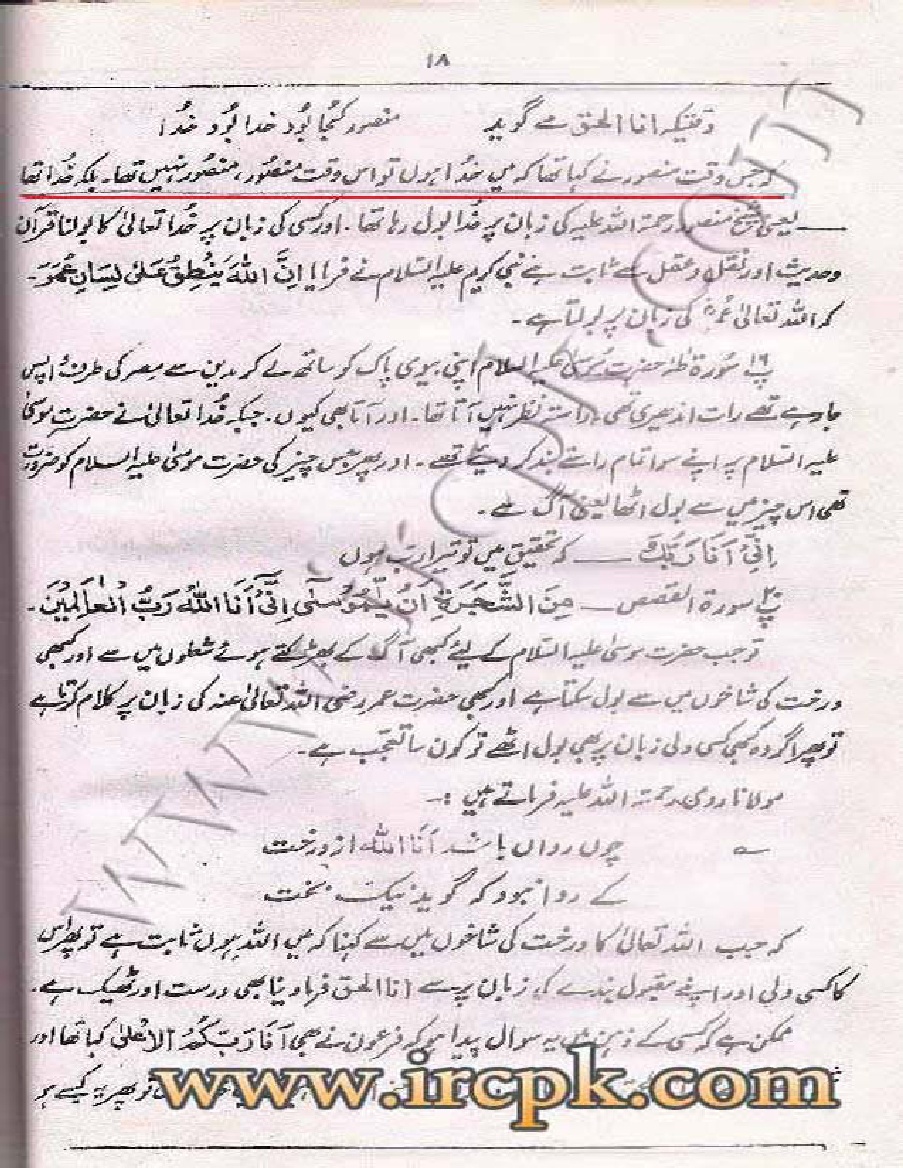 ۱۸
وقتیکہ انا الحق مے گوید منصور کجا بُود خدا بُود خُدا
کہ جس وقت منصور نے کہا تھا کہ میں خُدا ہوں تو اس وقت منصُور، منصُور نہیں تھا۔ بلکہ خُدا تھا
— یعنی شیخ منصور رحمتہ اللہ علیہ کی زبان پر خُدا بول رہا تھا۔ اور کسی کی زبان پر خُدا تعالیٰ کا بولنا قرآن
وحدیث اور نقل و عقل سے ثابت ہے نبی کریم علیہ السلام نے فرمایا اِنَّ اللّٰہَ یَنْطِقُ عَلیٰ لِسَانِ عُمَرَ۔
کہ اللہ تعالیٰ عمرؓ کی زبان پر بولتا ہے۔
پ۱۶ سُورۃ طٰہٰ حضرت مُوسیٰ علیہ السلام اپنی بیوی پاک کو ساتھ لے کر مدین سے مصر کی طرف واپس
جا رہے تھے رات اندھیری تھی، راستہ نظر نہیں آتا تھا۔ اور آتا بھی کیوں۔ جبکہ خُدا تعالیٰ نے حضرت موسیٰ
علیہ السلام پہ اپنے سوا تمام راستے بند کر دیئے تھے۔ اور پھر جس چیز کی حضرت موسیٰ علیہ السلام کو ضرورت
تھی اس چیز میں سے بول اٹھا یعنی آگ سے۔
اِنِّیْ اَنَا رَبُّکَ — کہ تحقیق میں تو تیرا رب ہوں
پ۲۰ سورۃ القصص — مِنَ الشَّجَرَۃِ اَنْ یّٰمُوْسٰٓی اِنِّیْٓ اَنَا اللّٰہُ رَبُّ الْعٰالَمِیْنَ۔
تو جب حضرت موسیٰ علیہ السلام کے لیئے کبھی آگ کے بھڑکتے ہوئے شعلوں میں سے اور کبھی
درخت کی شاخوں میں سے بول سکتا ہے اور کبھی حضرت عمر رضی اللہ تعالیٰ عنہ کی زبان پر کلام کرتا ہے
تو پھر اگر وہ کبھی کسی ولی زبان پر بھی بول اٹھے تو کون سا تعجب ہے۔
مولانا رومی رحمتہ اللہ علیہ فرماتے ہیں :۔
چوں رواں باشد اَنَا اللہ از درخت
کے روا نبود کہ گوید نیک بخت
کہ جب اللہ تعالیٰ کا درخت کی شاخوں میں سے کہنا کہ میں اللہ ہوں ثابت ہے تو پھر اس
کا کسی ولی اور اپنے مقبول بندے کی زبان پر سے انا الحق فرما دینا بھی درست اور ٹھیک ہے۔
ممکن ہے کہ کسی کے ذہن میں یہ سوال پیدا ہو کہ فرعون نے بھی اَنَا رَبُّکُمُ الْاَعْلیٰ کہا تھا اور
تو پھر یہ کیسے ہو
www.ircpk.com
WWW.IRCPK.COM